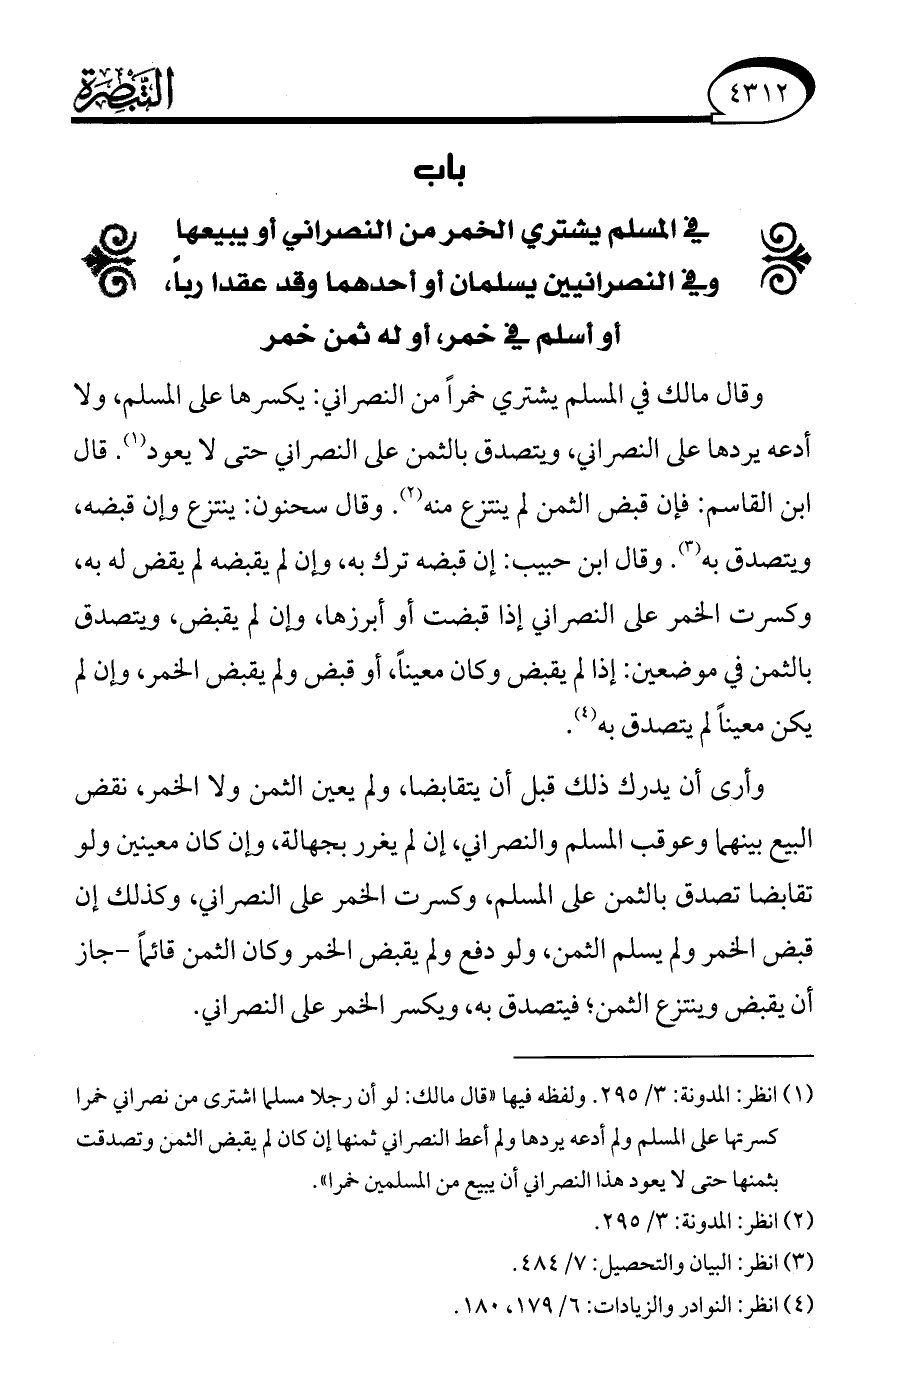 التبصرة
٤٣١٢
باب
في المسلم يشتري الخمر من النصراني أو يبيعها
وفي النصرانيين يسلمان أو أحدهما وقد عقدا رباً،
أو أسلم في خمر، أو له ثمن خمر
وقال مالك في المسلم يشتري خمراً من النصراني: يكسرها على المسلم، ولا
أدعه يردها على النصراني، ويتصدق بالثمن على النصراني حتى لا يعود(١). قال
ابن القاسم: فإن قبض الثمن لم ينتزع منه(٢). وقال سحنون: ينتزع وإن قبضه،
ويتصدق به(٣). وقال ابن حبيب: إن قبضه ترك به، وإن لم يقبضه لم يقض له به،
وكسرت الخمر على النصراني إذا قبضت أو أبرزها، وإن لم يقبض، ويتصدق
بالثمن في موضعين: إذا لم يقبض وكان معيناً، أو قبض ولم يقبض الخمر، وإن لم
يكن معيناً لم يتصدق به(٤).
وأرى أن يدرك ذلك قبل أن يتقابضا، ولم يعين الثمن ولا الخمر، نقض
البيع بينهما وعوقب المسلم والنصراني، إن لم يغرر بجهالة، وإن كان معينين ولو
تقابضا تصدق بالثمن على المسلم، وكسرت الخمر على النصراني، وكذلك إن
قبض الخمر ولم يسلم الثمن، ولو دفع ولم يقبض الخمر وكان الثمن قائماً -جاز
أن يقبض وينتزع الثمن؛ فيتصدق به، ويكسر الخمر على النصراني.
(١) انظر: المدونة: ٣/ ٢٩٥. ولفظه فيها «قال مالك: لو أن رجلا مسلما اشترى من نصراني خمرا
كسرتها على المسلم ولم أدعه يردها ولم أعط النصراني ثمنها إن كان لم يقبض الثمن وتصدقت
بثمنها حتى لا يعود هذا النصراني أن يبيع من المسلمين خمرا».
(٢) انظر: المدونة: ٣/ ٢٩٥.
(٣) انظر: البيان والتحصيل: ٧/ ٤٨٤.
(٤) انظر: النوادر والزيادات: ٦/ ١٧٩، ١٨٠.